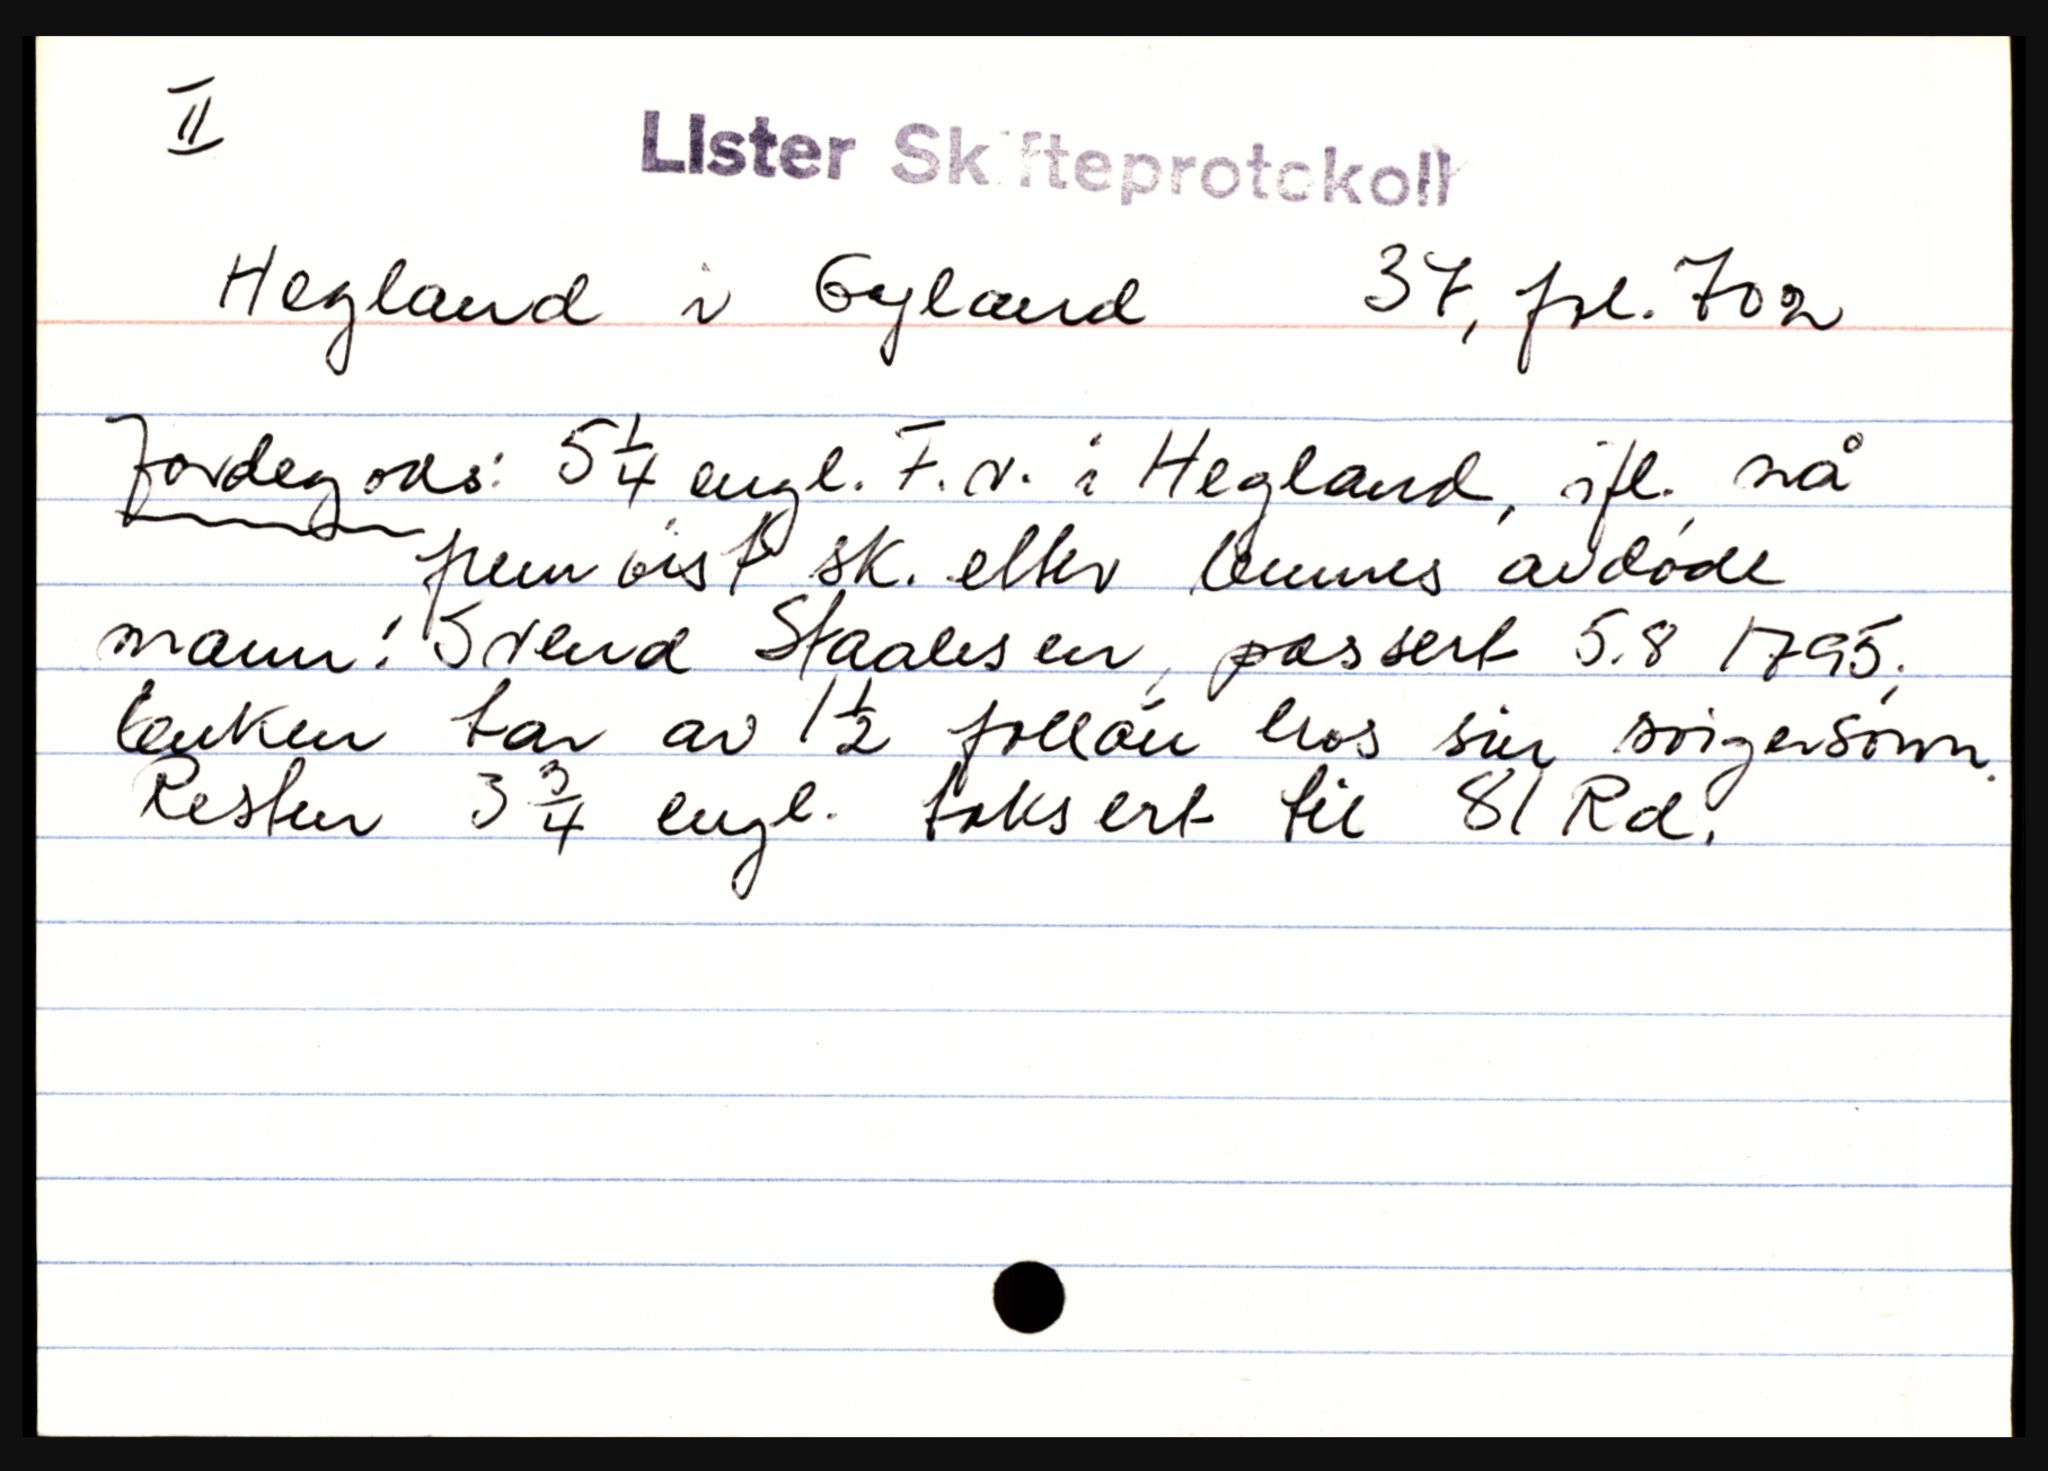 II
Lister Skifteprotokoll
Hegland i Gyland 37, fol. 702
Jordegods: 5 1/4 engl. F.v. i Hegland, ifl. nå
fremvist sk. etter hennes avdøde
mann: Svend Staalesen, passert 5.8 1795.
Enken tar av 1 1/2 follau hos sin svigersønn.
Resten 3 3/4 engl. taksert til 81 Rd.